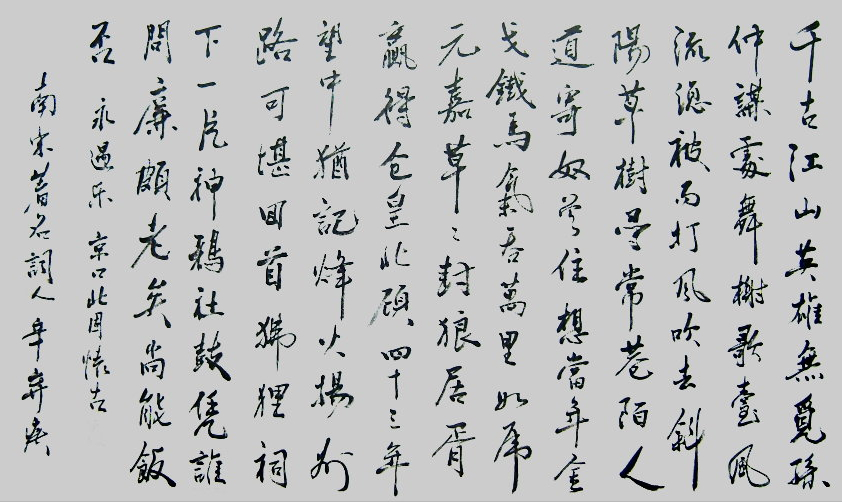 千古江山英雄無覓孫
仲謀處舞榭歌臺風
流總被雨打風吹去斜
陽草樹尋常巷陌人
道寄奴曾住想當年金
戈鐵馬氣吞萬里如虎
元嘉草々封狼居胥
贏得仓皇北顧四十三年
望中猶記烽火揚州
路可堪回首狒狸祠
下一片神鴉社鼓凭誰
問廉頗老矣尚能飯
否 永遇乐 京口北固懷古
南宋著名詞人辛弃疾